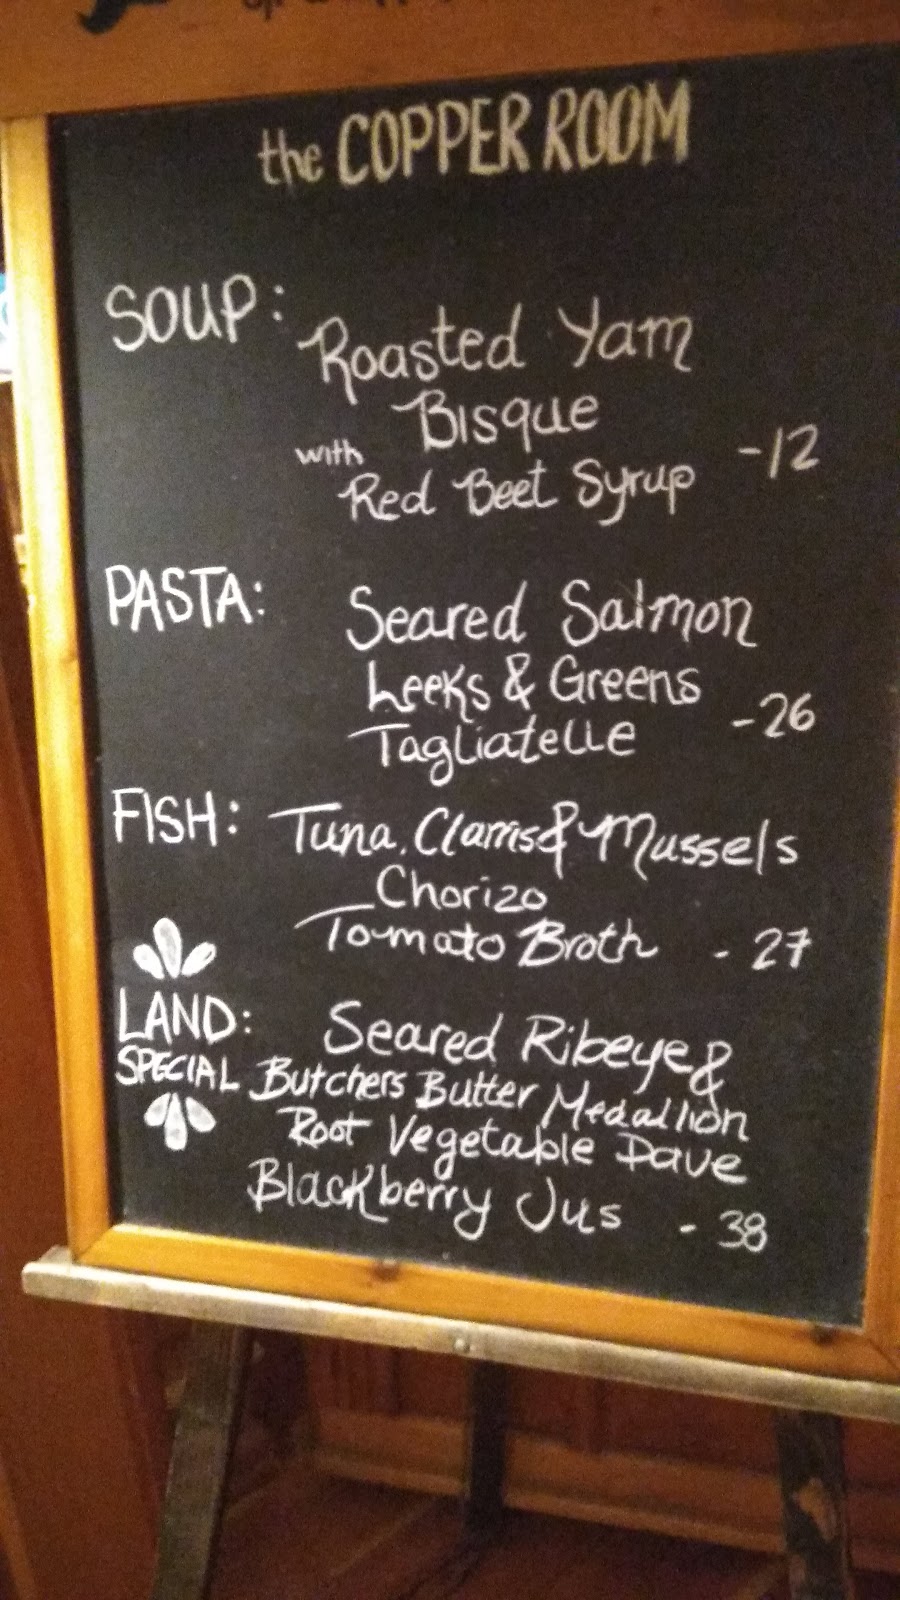 the COPPER ROOM
SOUP:
Roasted Yam
Bisque
with
Red Beet Syrup -12
PASTA:
Seared Salmon
Leeks & Greens
Tagliatelle -26
FISH: Tuna, Clams & Mussels
Chorizo
Tomato Broth - 27
LAND: Seared Ribeye &
SPECIAL Butchers Butter Medallion
Root Vegetable Pave
Blackberry Jus - 38